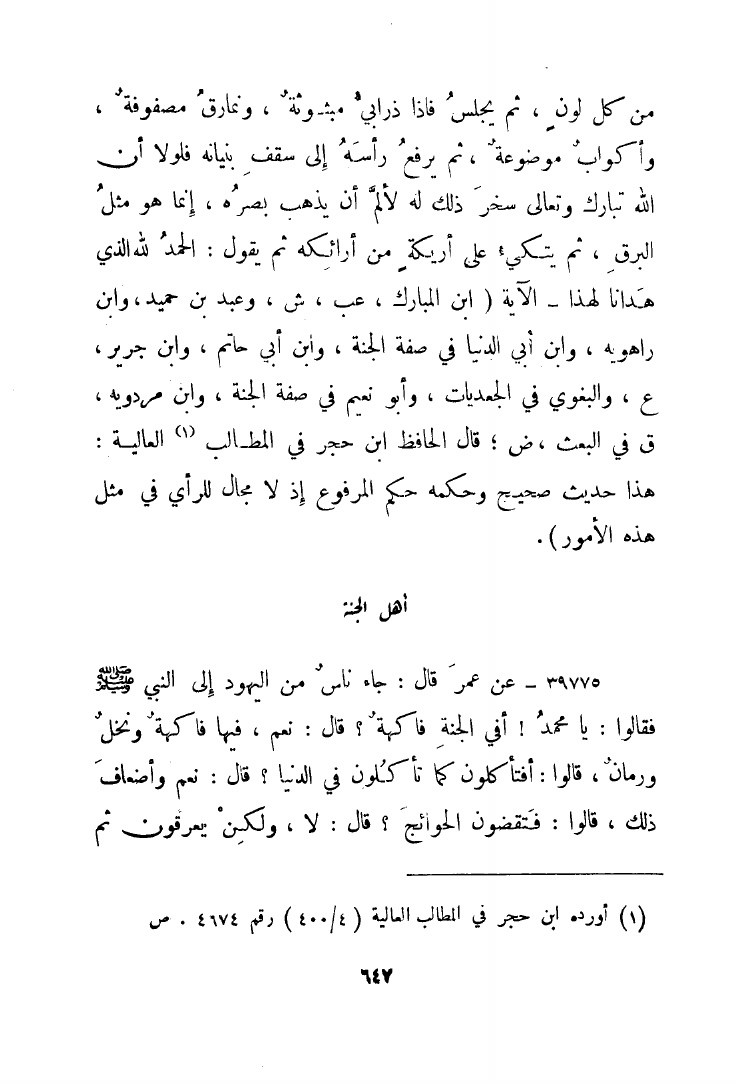 من كل لونٍ ، ثم يجلسُ فاذا ذرابيُّ مبثوثةٌ ، ونمارقُ مصفوفةٌ ،
وأكوابٌ موضوعةٌ ، ثم يرفعُ رأسَهُ إلى سقفِ بنيانه فلولا أن
الله تبارك وتعالى سخرَ ذلك له لألمَّ أن يذهب بصرُه ، إنما هو مثلُ
البرقِ ، ثم يتكيء على أريكةٍ من أرائكه ثم يقول : الحمدُ لله الذي
هَدانا لهذا - الآية ( ابن المبارك ، عب ، ش ، وعبد بن حميد ، وابن
راهويه ، وابن أبي الدنيا في صفة الجنة ، وابن أبي حاتم ، وابن جرير ،
ع ، والبغوي في الجعديات ، وأبو نعيم في صفة الجنة ، وابن مردويه ،
ق في البعث ، ض ؛ قال الحافظ ابن حجر في المطالب (١) العالية :
هذا حديث صحيح وحكمه حكم المرفوع إذ لا مجال للرأي في مثل
هذه الأمور ) .
أهل الجنة
٣٩٧٧٥ - عن عمرَ قال : جاء ناسٌ من اليهود إلى النبي ﷺ
فقالوا : يا محمدُ ! أفي الجنةِ فاكهةٌ ؟ قال : نعم ، فيها فاكهةٌ ونخلٌ
ورمانٌ ، قالوا : أفتأكلون كما تأكلُون في الدنيا ؟ قال : نعم وأضعافَ
ذلك ، قالوا : فتقضون الحوائجَ ؟ قال : لا ، ولكِنْ يعرقون ثم
(١) أورده ابن حجر في المطالب العالية ( ٤/ ٤٠٠ ) رقم ٤٦٧٤ . ص
٦٤٧